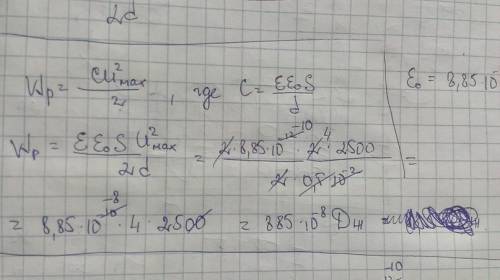 2d
Wp = CU²max / 2, где C = εε₀S / d
ε₀ = 8,85·10
Wp = εε₀S U²max / 2d = 2·8,85·10⁻¹⁰ · 2⁴ · 2500 / 2 · 0,5·10⁻² =
= 8,85·10⁻⁸ · 4 · 2500 = 885·10⁻⁸ Дж =
-10